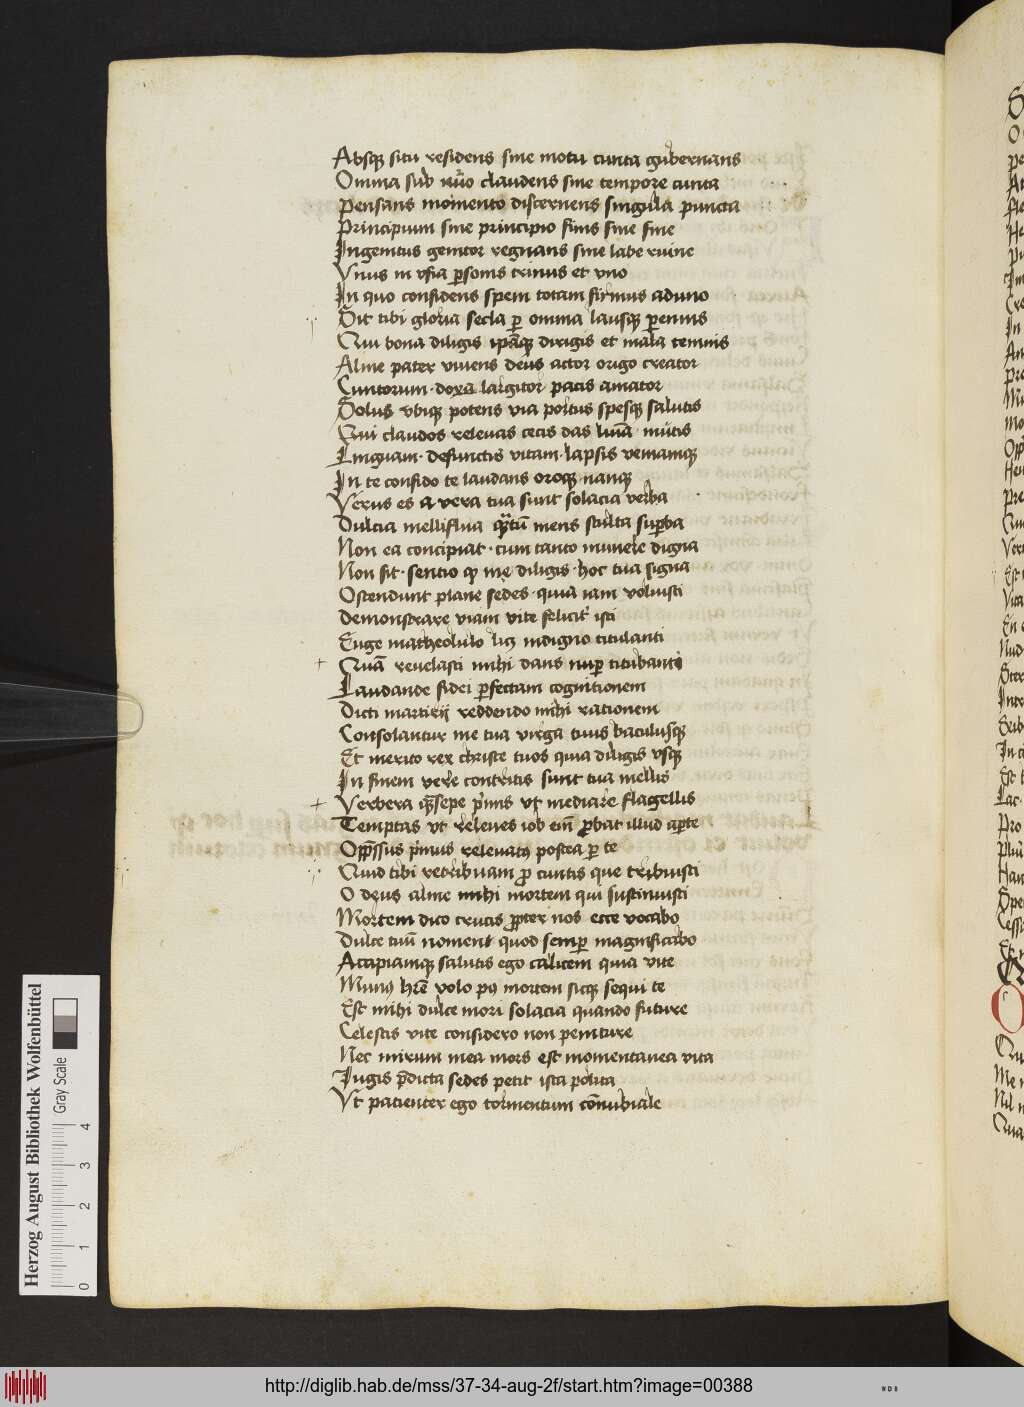 Absq situ residens sine motu cuncta gubernans
Omnia sub nuo claudens sine tempore cuncta
Pensans momento discernens singula puncta
Principium sine principio finis sine fine
Ingenitus genitor regnans sine labe ruine
Unus in usia psonis trinus et uno
In quo considens spem totam firmus aduno
Sit tibi gloria secla p omnia lausq pennis
Qui bona diligis ipaq dirigis et mala temnis
Alme pater vivens deus actor origo creator
Cunctorum doxa largitor pacis amator
Solus ubiq potens via portus spesq salutis
Qui claudos relevas cecis das lumia mutis
Linguam defunctis vitam lapsis veniamq
In te confido te laudans oroq namq
Verus es a vera tua sunt solacia verba
Dulcia melliflua qtu mens stulta supba
Non ea concipiat cum tanto munere digna
Non sit sentio q me diligis hoc tua signa
Ostendunt plane sedes quia iam voluisti
Demonstrare viam vite felicit isti
Euge matheolulo licz indigno titulanti
Qua revelasti mihi dans nup titubanti
Laudande fidei pfectam cognitionem
Dicti martirij reddendo mihi rationem
Consolantur me tua virga tuus baculusq
Et merito rex christe tuos quia diligis usq
In finem vere contritis sunt tua mellis
Verbera qsepe prius ut mediare flagellis
Temptas ut releves iob eni pbat illud apte
Oppssus primus relevatus postea p te
Quid tibi retribuam p cunctis que tribuisti
O deus alme mihi mortem qui sustinuisti
Mortem dico crucis ppter nos ecce vocabo
Dulce tuu nomen quod semp magnificabo
Accipiamq salutis ego calicem quia vite
Munus hre volo pus mortem sicq sequi te
Est mihi dulce mori solacia quando future
Celestis vite considero non peniture
Nec mirum mea mors est momentanea vita
Iugis pdicta sedes petit ista polita
Ut patienter ego tormentum conubiale
Herzog August Bibliothek Wolfenbüttel
Gray Scale
0 1 2 3 4
http://diglib.hab.de/mss/37-34-aug-2f/start.htm?image=00388